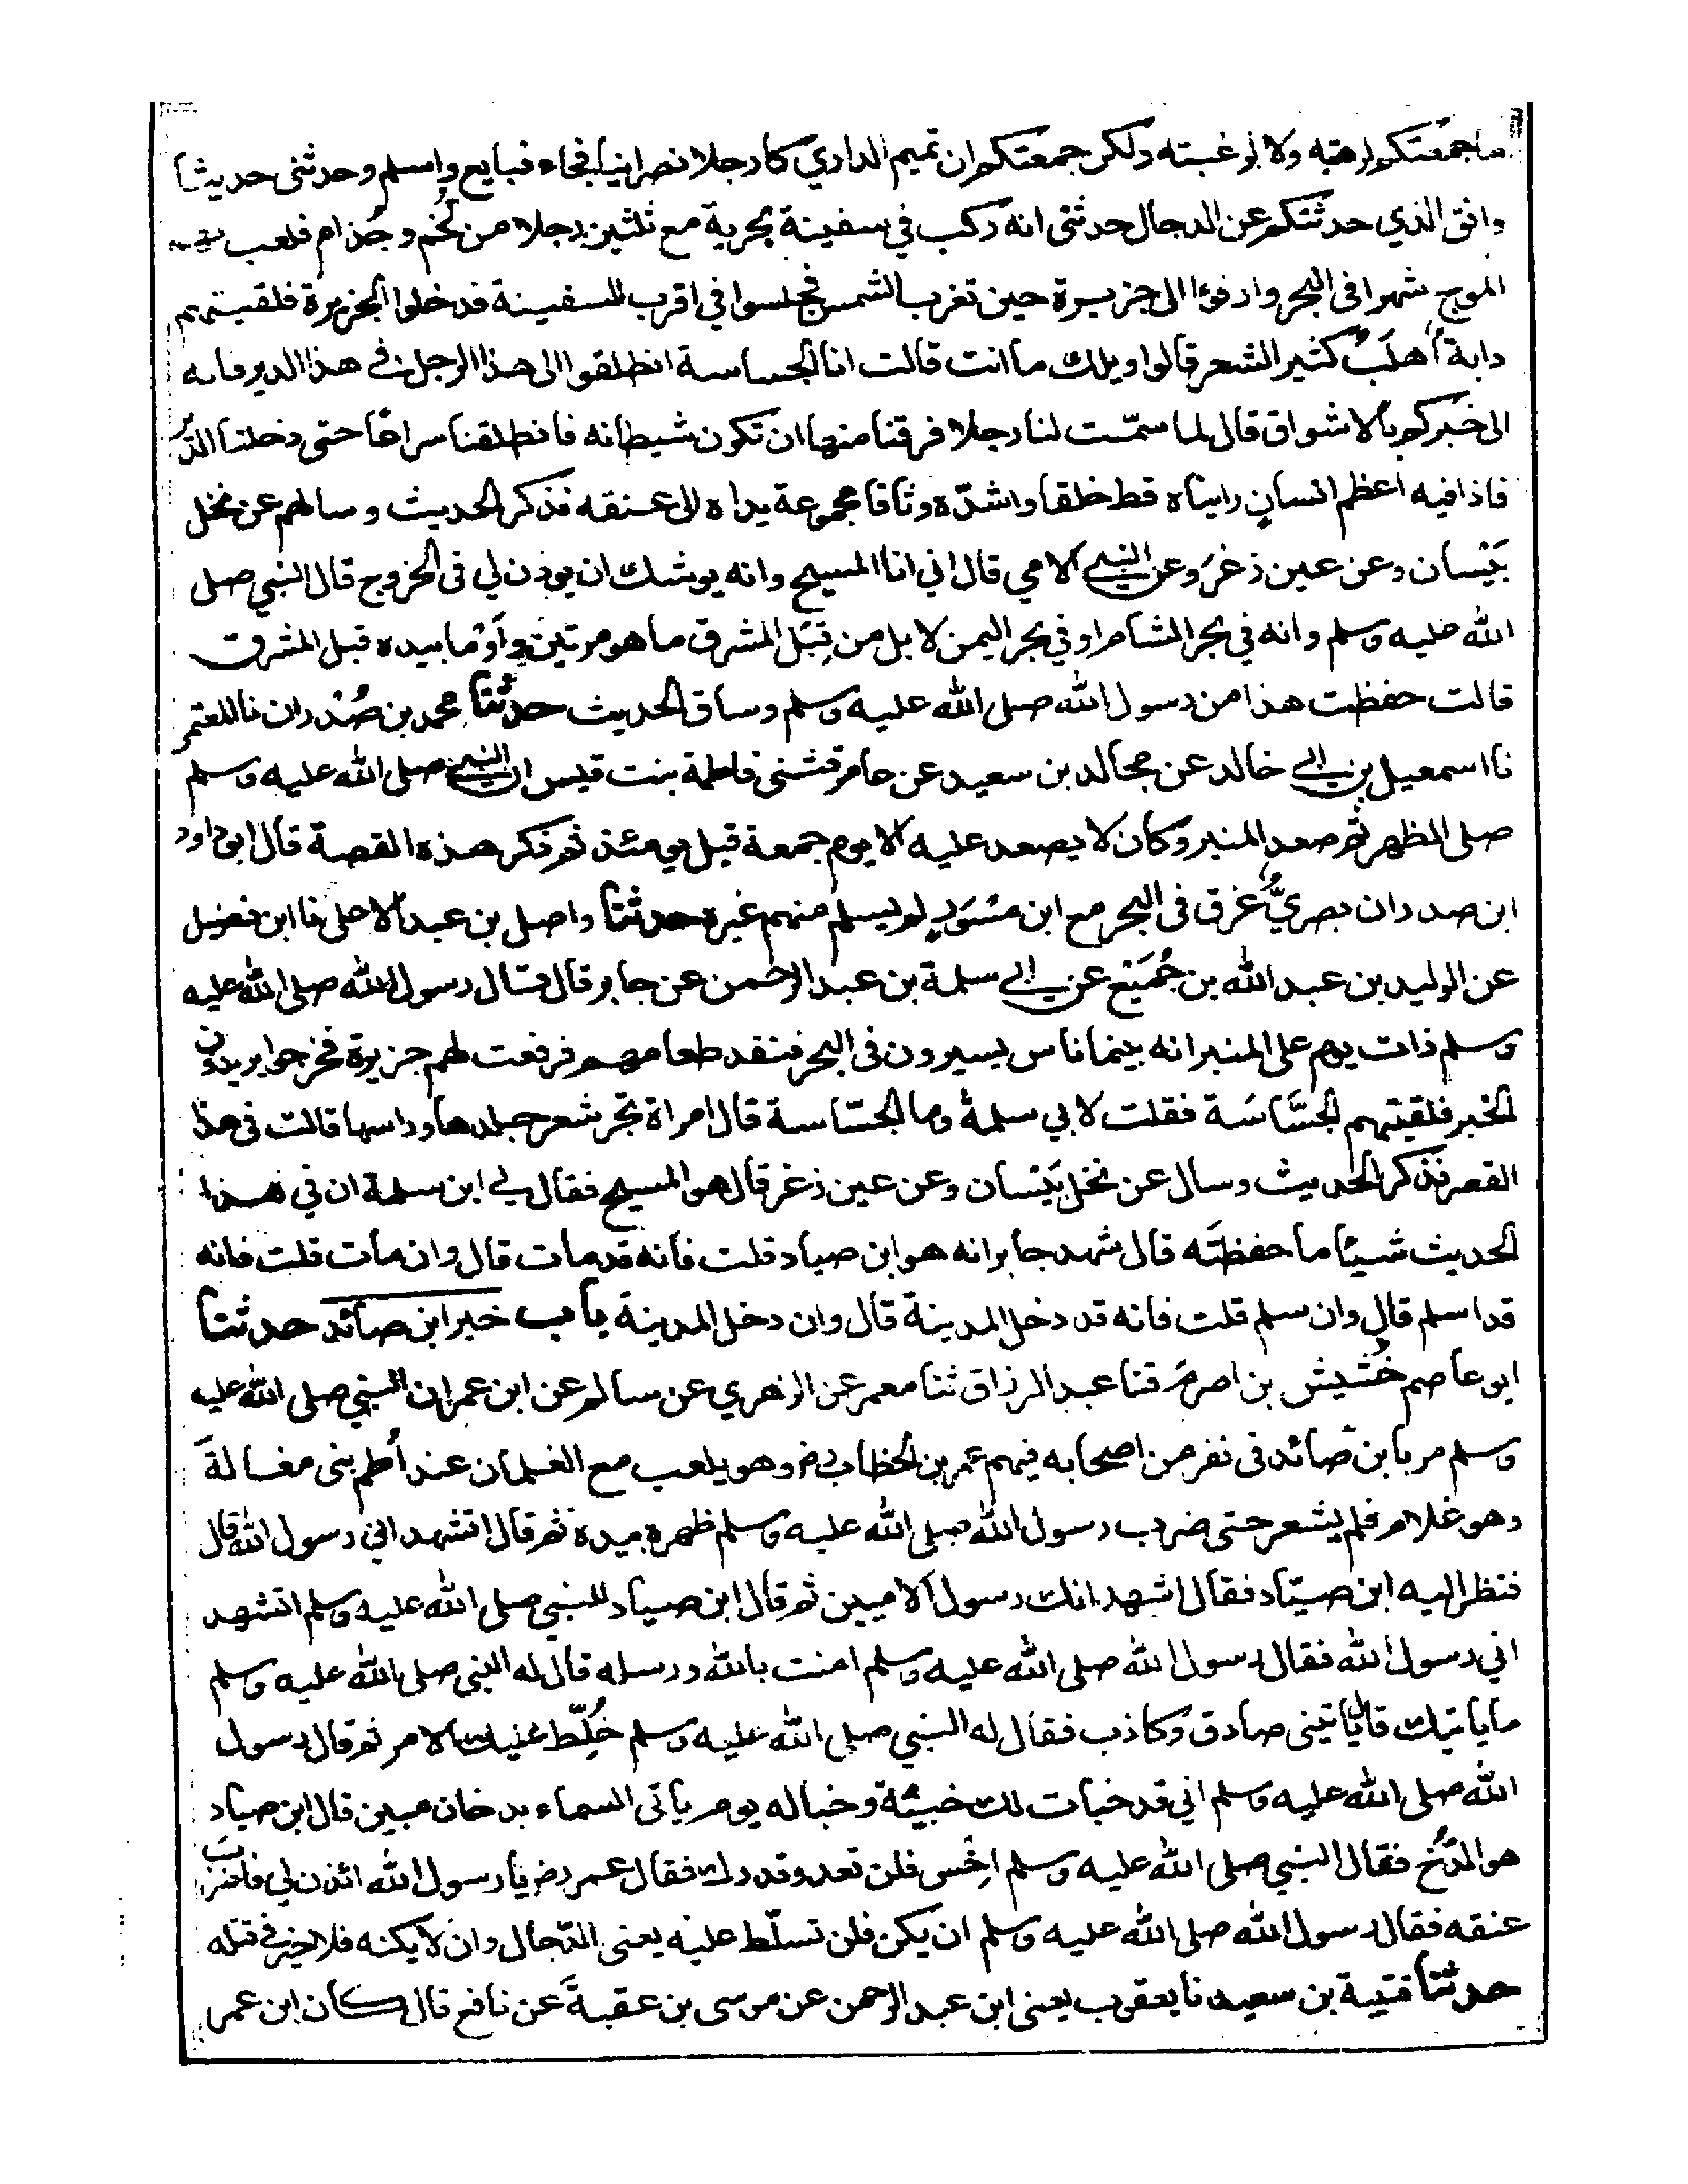 ما جمعتكم لرهبة ولا لرغبته ولكن جمعتكم ان تميم الداري كان رجلا نصرانيا فجاء فبايع واسلم وحدثنى حديثا
وافق الذي حدثتكم عن الدجال حدثنى انه ركب في سفينة بحرية مع ثلثين رجلا من لَخْم وجُذام فلعب بهم
الموج شهرا فى البحر وارفؤا الى جزيرة حين تغرب الشمس فجلسوا في اقرب السفينة فدخلوا الجزيرة فلقيتهم
دابة اَهلَبُ كثير الشعر قالوا ويلك ما انت قالت انا الجساسة انطلقوا الى هذا الرجل في هذا الدير فانه
الى خبركم بالاشواق قال لما سمّت لنا رجلا فرقنا منها ان تكون شيطانه فانطلقنا سراعًا حتى دخلنا الدير
فاذا فيه اعظم انسانٍ رايناه قط خلقا واشدّه وثاقا مجموعة يداه الى عنقه فذكر الحديث وسالهم عن نخل
بَيْسان وعن عين زغَرَ وعن النبي الامي قال انى انا المسيح وانه يوشك ان يوذن لي فى الخروج قال النبي صلى
الله عليه وسلم وانه في بحر الشام او في بحر اليمن لا بل من قِبَل المشرق ما هو مرتين واَوْما بيده قبل المشرق
قالت حفظت هذا من رسول الله صلى الله عليه وسلم وساق الحديث حدثنا محمد بن صُدْران نا المعتمر
نا اسمعيل بن ابي خالد عن مجالد بن سعيد عن عامر قثنى فاطمة بنت قيس ان النبي صلى الله عليه وسلم
صلى الظهر ثم صعد المنبر وكان لا يصعد عليه الا يوم جمعة قبل يومئذ ثم ذكر هذه القصة قال ابو داود
ابن صدران بصريٌّ غرق فى البحر مع ابن مِسْوَرٍ لم يسلم منهم غيره حدثنا واصل بن عبد الاعلى نا ابن فضيل
عن الوليد بن عبد الله بن جُمَيْع عن ابي سلمة بن عبد الرحمن عن جابر قال قال رسول الله صلى الله عليه
وسلم ذات يوم على المنبر انه بينما ناس يسيرون فى البحر فنفد طعامهم فرفعت لهم جزيرة فخرجوا يريدون
الخبر فلقيتهم الجسَّاسَة فقلت لابي سلمةَ وما الجسّاسة قال امراة تجر شعر جلدها وراسها قالت فى هذا
القصر فذكر الحديث وسال عن نخل بَيْسان وعن عين زغر قال هو المسيح فقال لي ابن سلمة ان في هذا
الحديث شيئا ما حفظتَه قال شهد جابر انه هو ابن صياد قلت فانه قد مات قال وان مات قلت فانه
قد اسلم قال وان سلم قلت فانه قد دخل المدينة قال وان دخل المدينة باب خبر ابن صائد حدثنا
ابو عاصم خُشَيش بن اصرمَ قثنا عبد الرزاق ثنا معمر عن الزهري عن سالم عن ابن عمر ان النبي صلى الله عليه
وسلم مر بابن صائد فى نفر من اصحابه فيهم عمر بن الخطاب رض وهو يلعب مع الغلمان عند اُطم بنى مغالةَ
وهو غلام فلم يشعر حتى ضرب رسول الله صلى الله عليه وسلم ظهره بيده ثم قال اتشهد انى رسول الله قال
فنظر اليه ابن صيّاد فقال اشهد انك رسول الاميين ثم قال ابن صياد للنبي صلى الله عليه وسلم اتشهد
اني رسول الله فقال رسول الله صلى الله عليه وسلم امنت بالله ورسله قال له النبى صلى الله عليه وسلم
ما ياتيك قال ياتينى صادق وكاذب فقال له النبي صلى الله عليه وسلم خُلِّط عليك الامر ثم قال رسول
الله صلى الله عليه وسلم اني قد خبات لك خبيئة وخبا له يوم ياتى السماء بدخان مبين قال ابن صياد
هو الدُّخ فقال النبي صلى الله عليه وسلم اخِس فلن تعدو قدرك فقال عمر رض يا رسول الله ائذن لي فاضرب
عنقه فقال رسول الله صلى الله عليه وسلم ان يكن فلن تسلّط عليه يعنى الدّجال وان لا يكنه فلا خير في قتله
حدثنا قتيبة بن سعيد نا يعقوب يعنى ابن عبد الرحمن عن موسى بن عقبةَ عن نافع قال كان ابن عمر